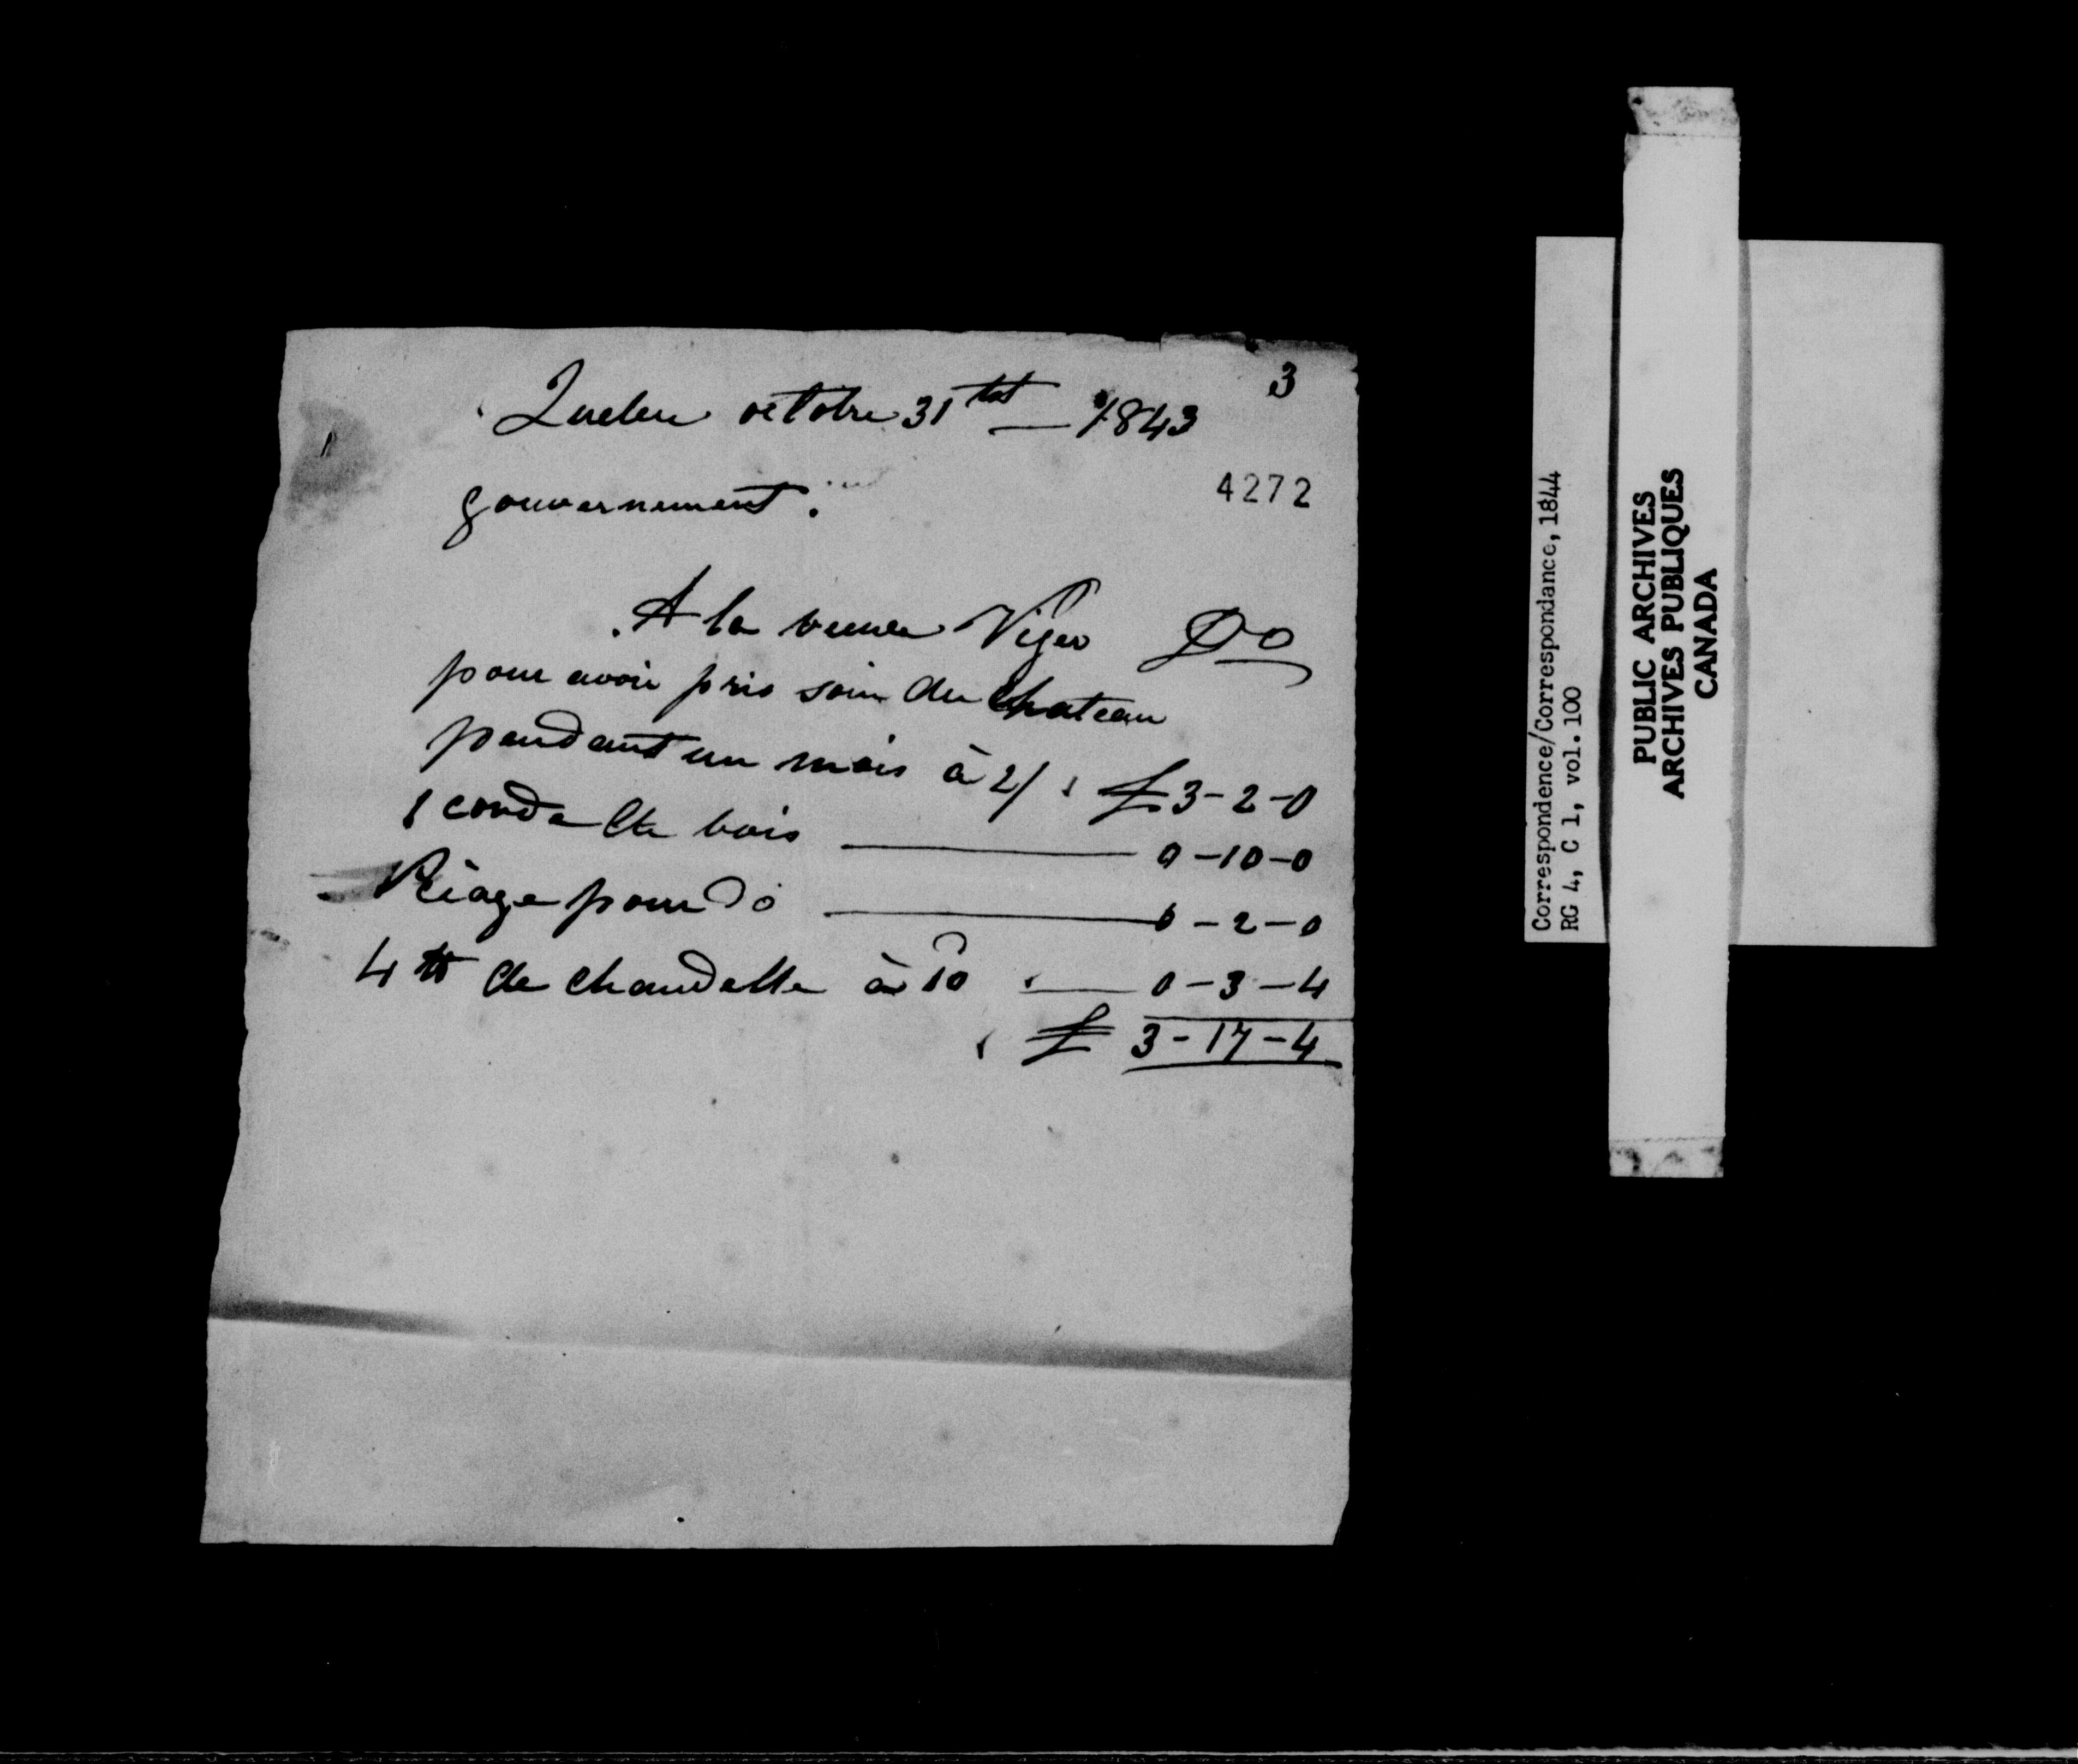 3
Quebec octobre 31 tst — 1843
4272
gouvernement.
A la veuve Viger Do
pour avoir pris soin du Chateau
pendant un mois à 2/ £ 3-2-0
1 corde de bois 0-10-0
pour do 0-2-0
4 tt de chandelle à 10 — 0-3-4
£ 3-17-4
Correspondence/Correspondance, 1844
RG 4, C 1, vol. 100
PUBLIC ARCHIVES
ARCHIVES PUBLIQUES
CANADA